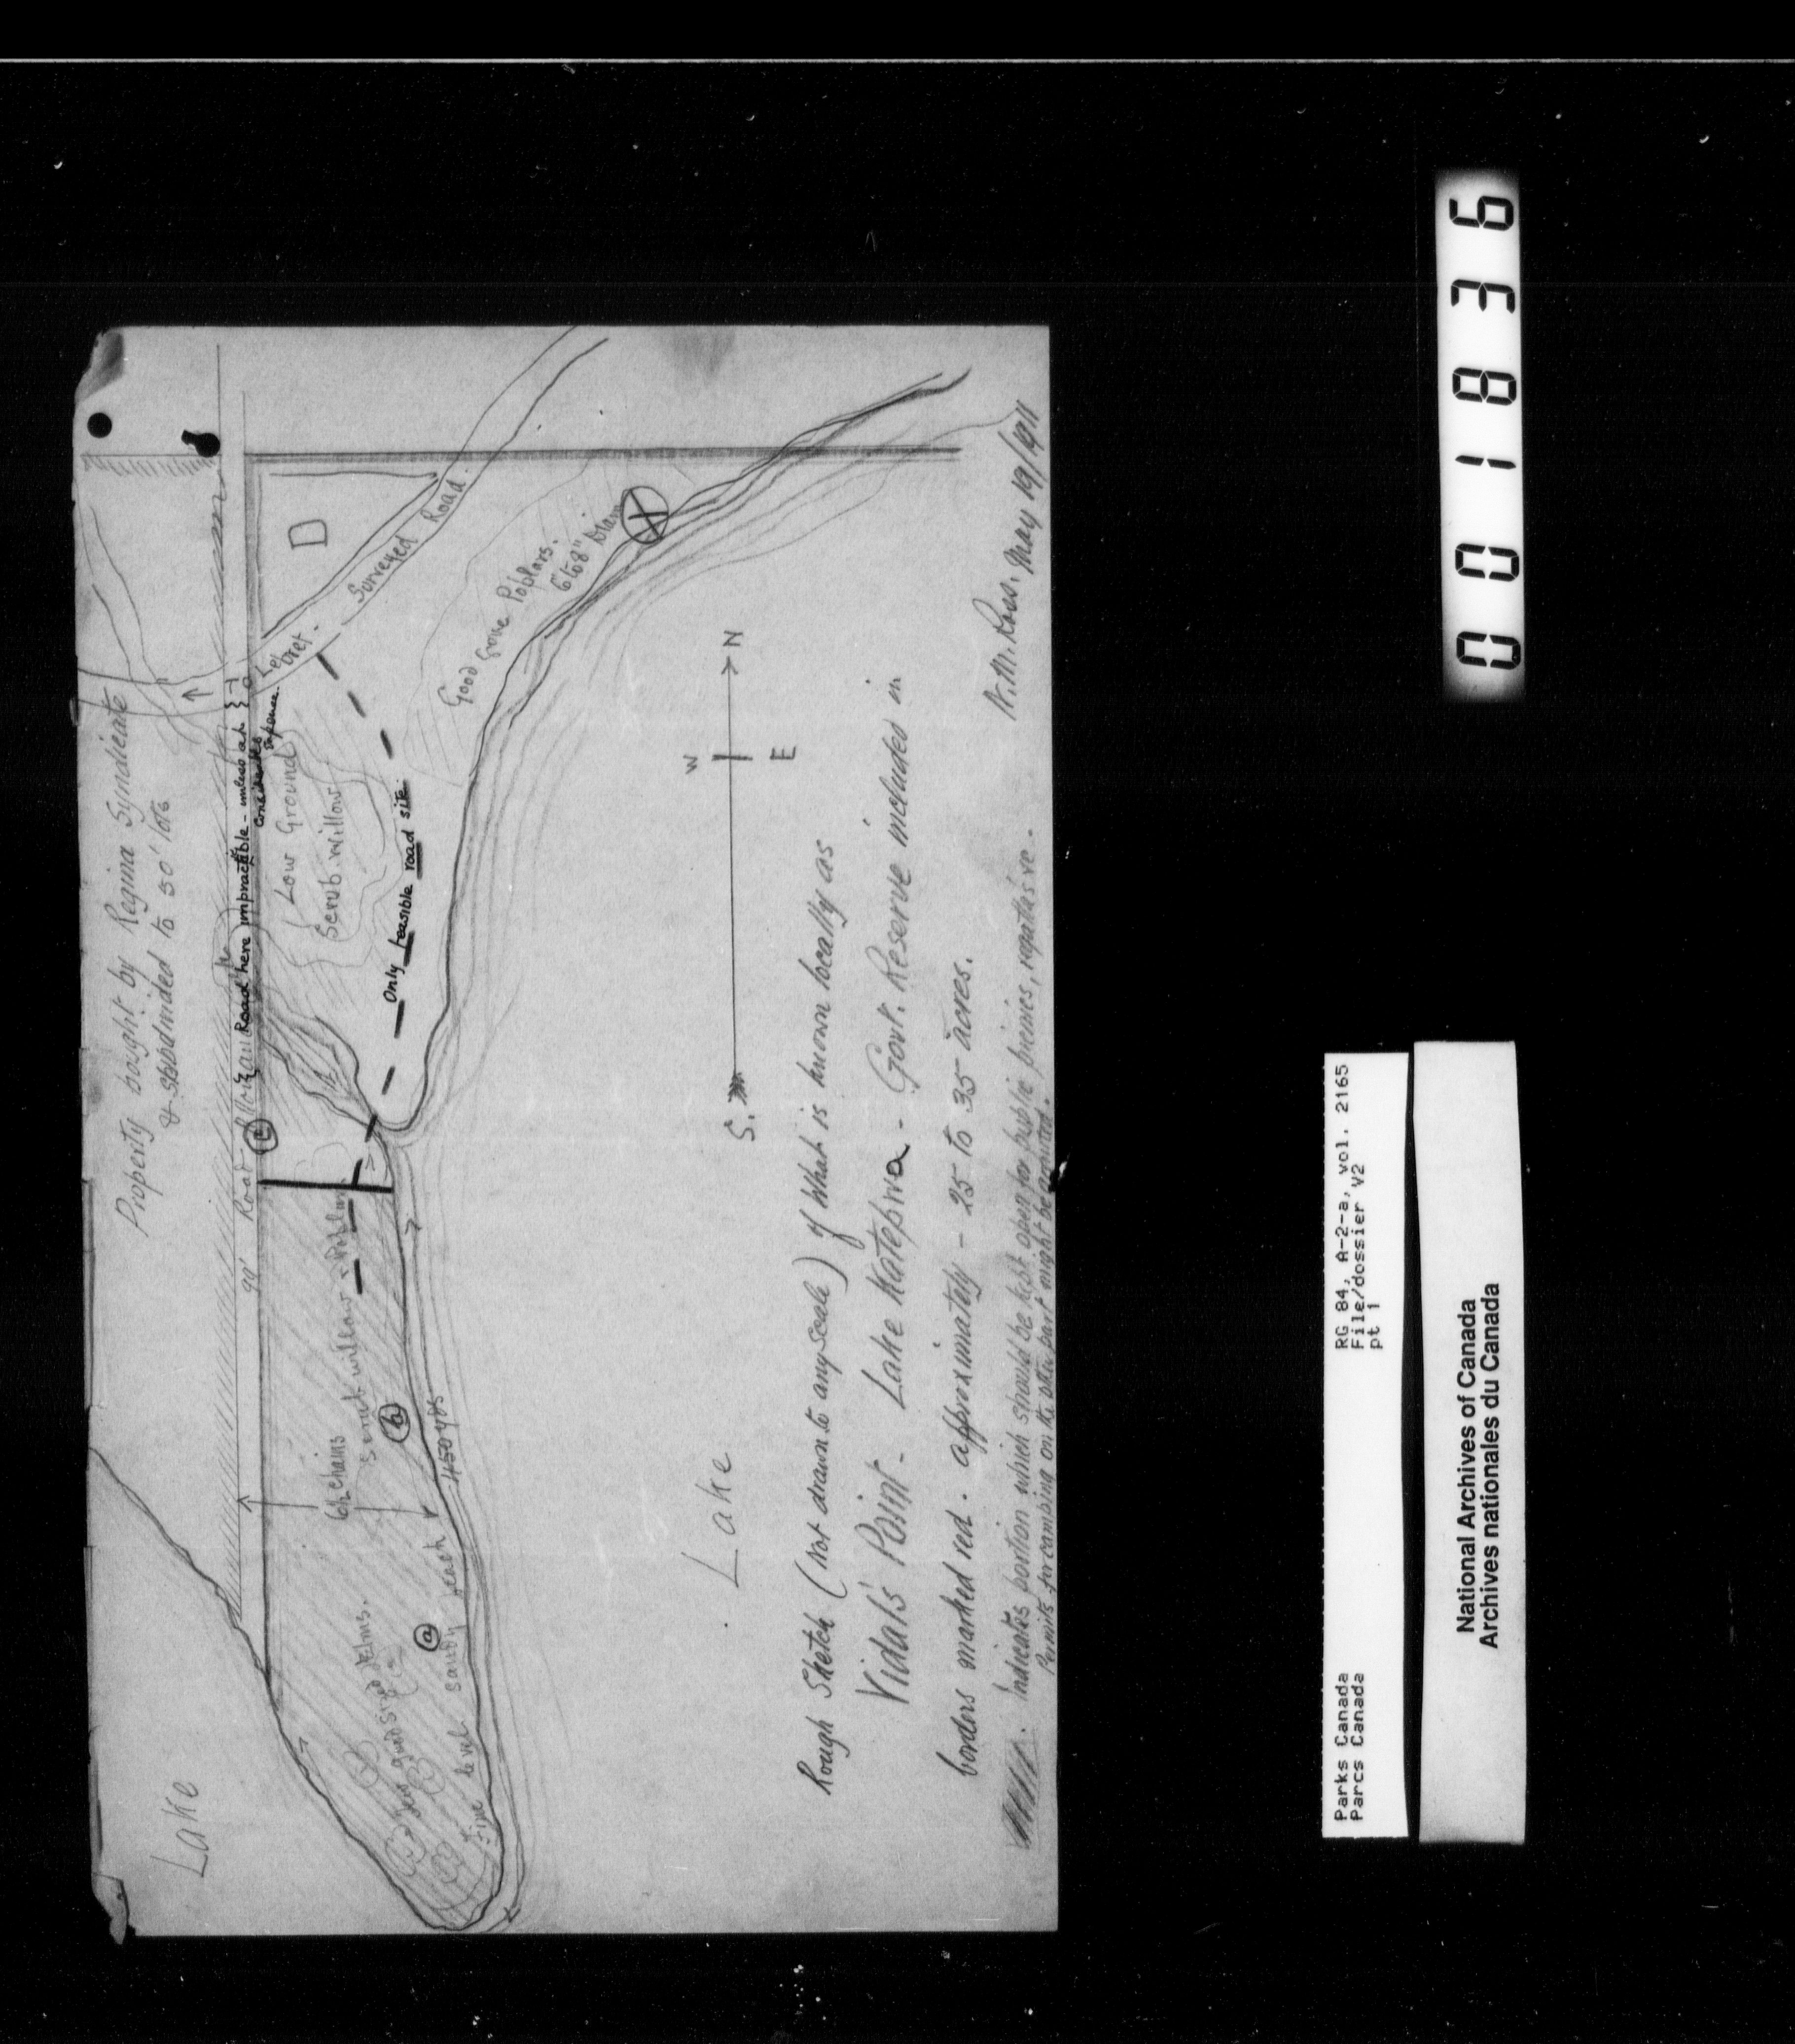 Property bought by Regina Syndicate
& subdivided to 50' lots
Lake
99' Road
Road here impracticable - unless at
considerable
expense.
Lebret.
Surveyed Road.
D
Low Ground
Scrub willow
Good Grove Poplars.
6" to 8" Diam
Only feasible road site.
C
6½ chains
Scrub willow & Poplar
b
450 yds
a
Few good sized Elms.
Fine level sandy beach
W
S. N
E
Lake
Rough Sketch (Not drawn to any scale) of what is known locally as
Vidal's Point - Lake Katepwa - Govt. Reserve included in
borders marked red. approximately - 25 to 35 acres.
Indicates portion which should be kept open for public picnics, regattas re -
Permits for camping on the other part might be granted.
N. M. Ross. May 19/1911
001836
Parks Canada
Parcs Canada
RG 84, A-2-a, vol. 2165
File/dossier V2
pt 1
National Archives of Canada
Archives nationales du Canada